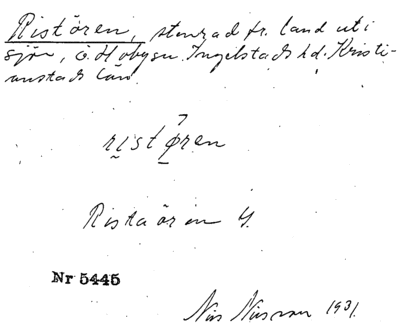 Ristören, stenrad fr. land ut i
sjön, ö. Hobygn. Ingelstads hd. Kristi-
anstads län
ristören
Ristaören 4.
Nr 5445
Nils Nilsson 1931.